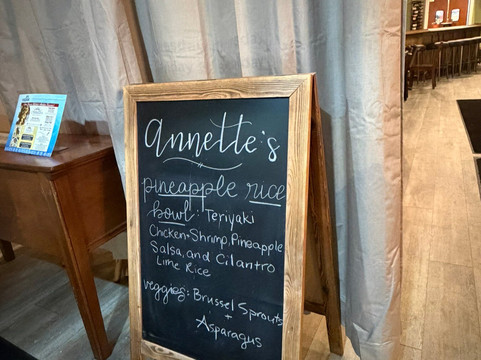 Annette's
pineapple rice
bowl: Teriyaki
Chicken + Shrimp, Pineapple
Salsa, and Cilantro
Lime Rice
veggies: Brussel Sprouts
+
Asparagus